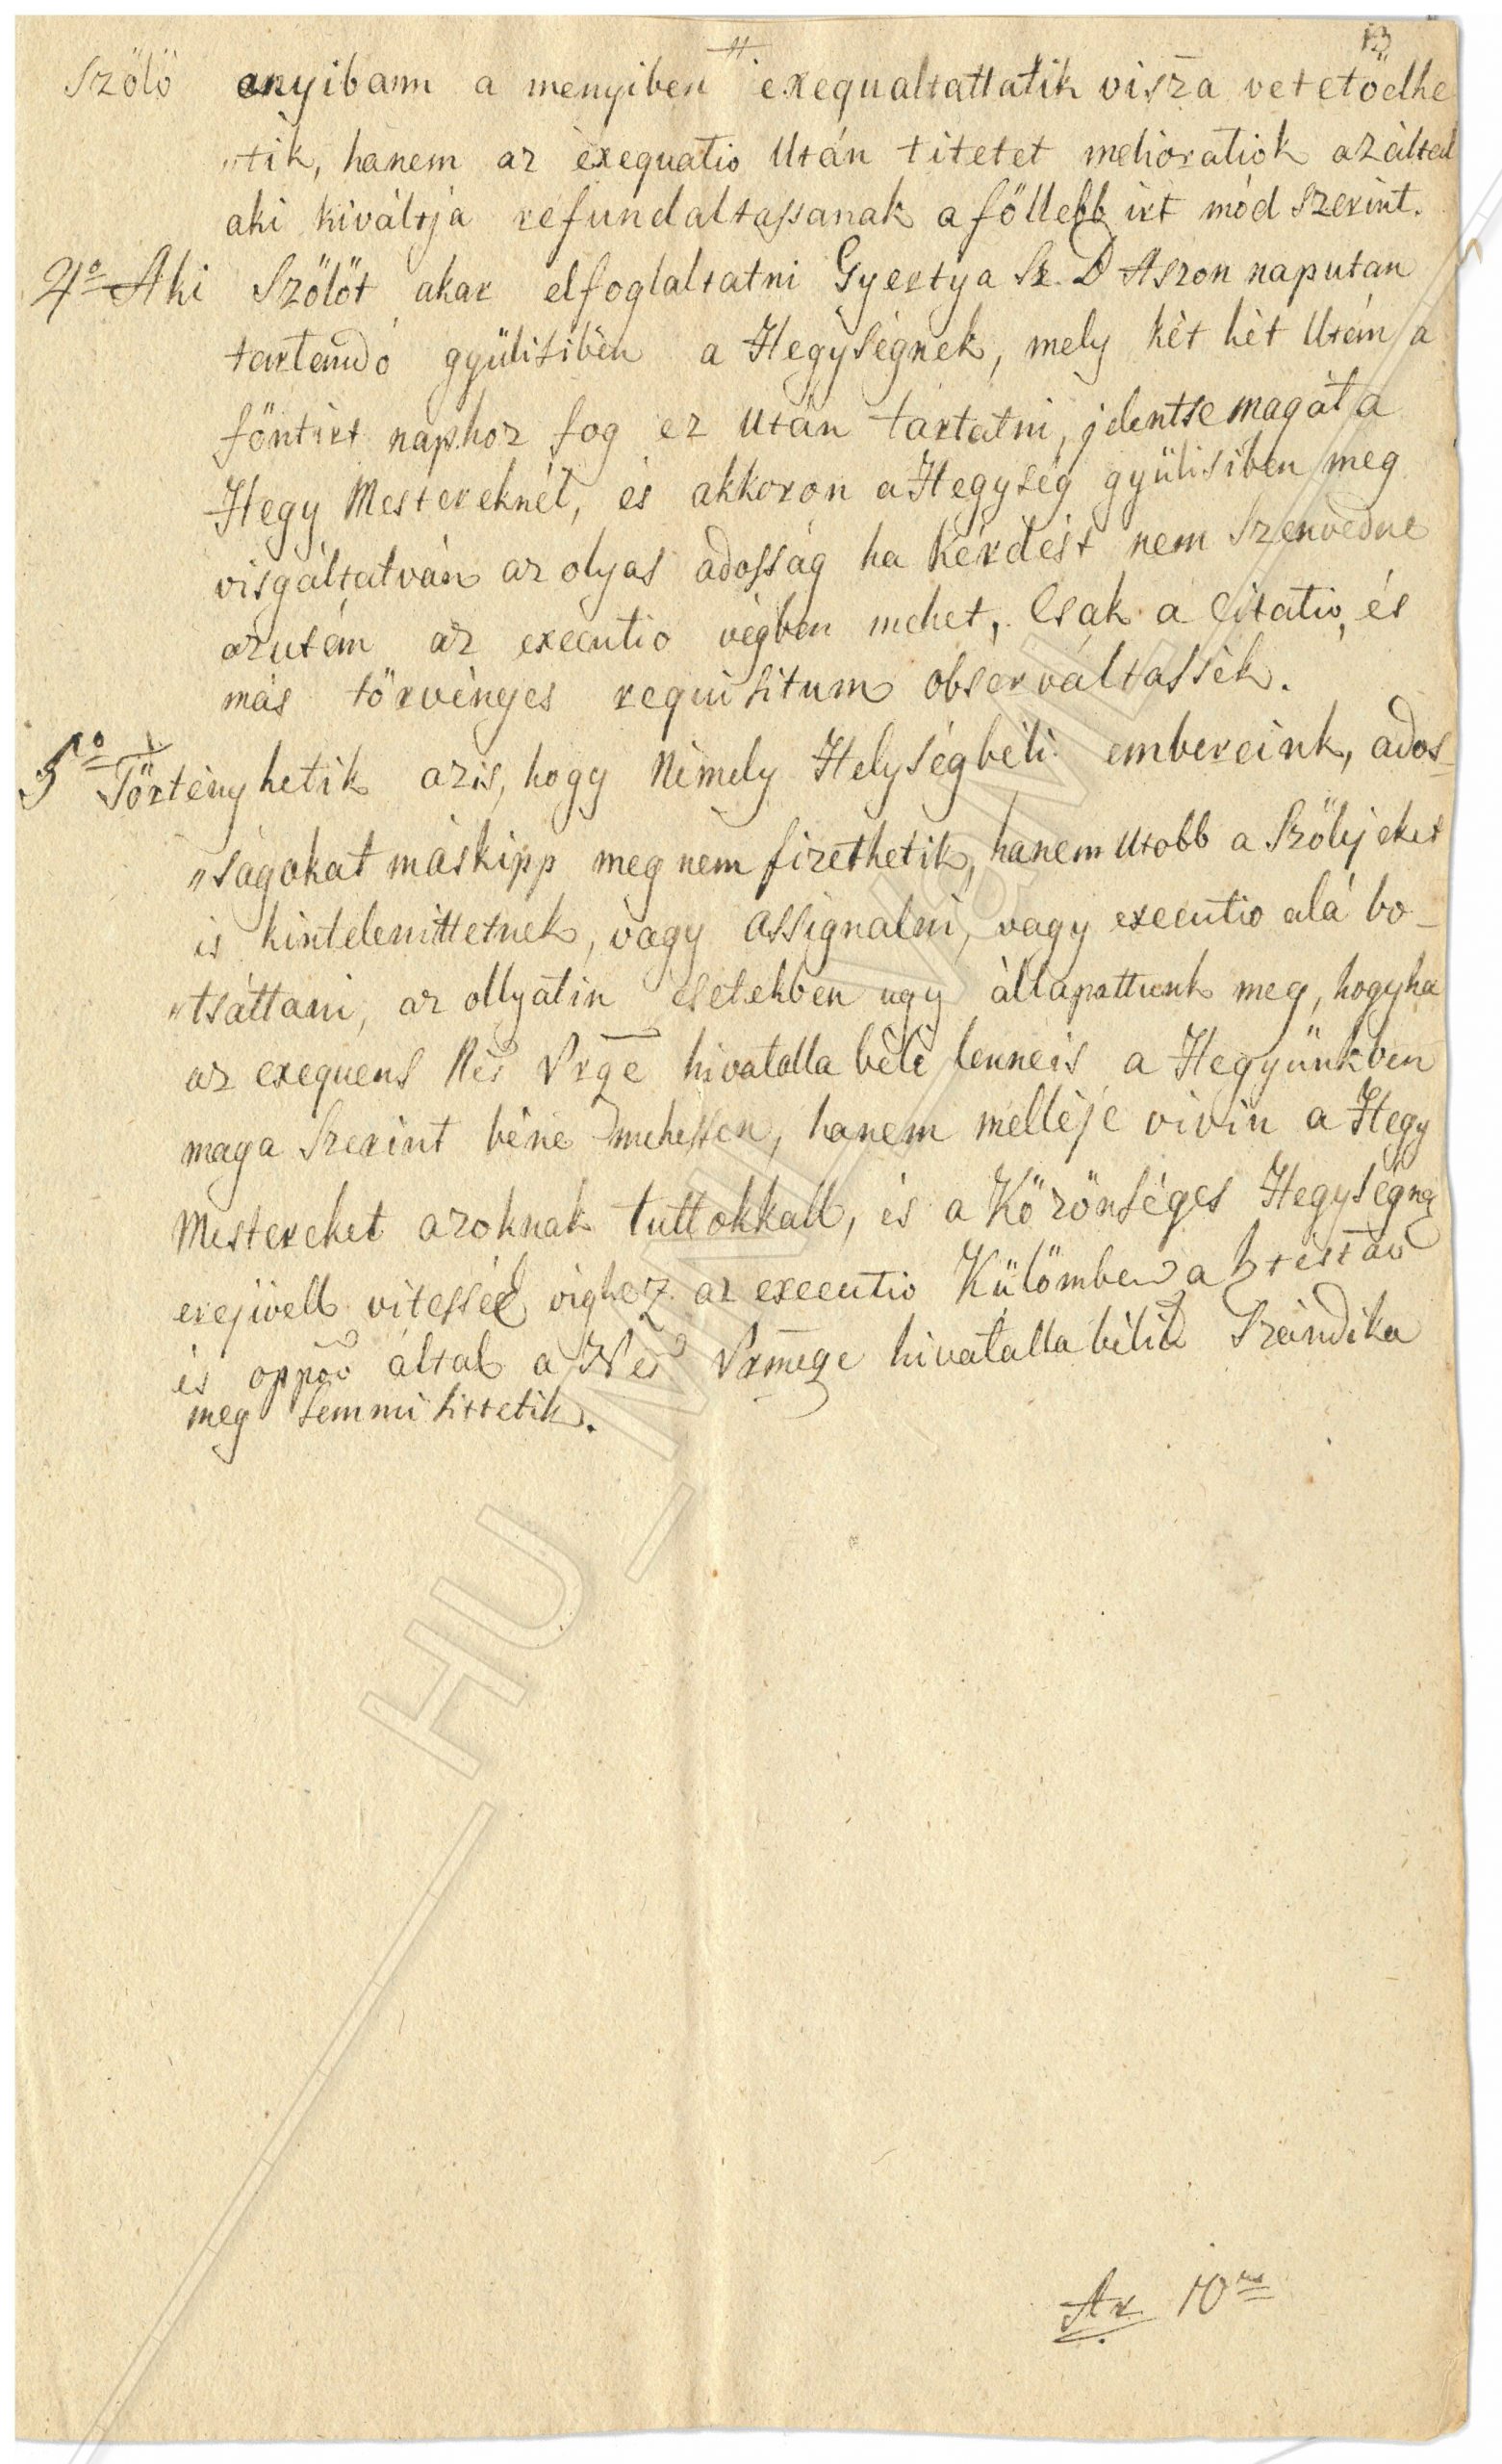 Szőlő anyibann a menyiben exequaltattatik visza vetetődhe
„tik, hanem az exequatio Után titetet melioratiok azáltal
aki kiváltja refundaltassanak a föllebb irt mód Szerint.
4º Aki Szőlőt akar elfoglaltatni Gyertya Sz. B Aszon naputan
tartandó gyülisiben a Hegységnek, mely két hét Után a
föntirt naphoz fog ez Után tartatni, jelentse magát a
Hegy Mestereknél, és akkoron a Hegység gyülisiben meg
visgáltatván az olyas adosság ha Kérdést nem Szenvedne
azután az executio végben mehet, Csak a Citatio, és
más törvényes requisitum observáltassék.
5º Történyhetik azis, hogy Némely Helységbéli embereink, ados-
„ságokat máskipp meg nem fizethetik, hanem Utobb a Szőlejeket
is kintelenittetnek, vagy assignalni, vagy executio alá bo-
„tsáttani, az ollyatin esetekben ugy állapottunk meg, hogyha
az exequens Nes Vrge hivatalla béli lenneis a Hegyünkben
maga Szerint béne mehessen, hanem melléje vivin a Hegy
Mestereket azoknak tuttokkall, és a Közönséges Hegységnek
erejivell vitessék vighez az executio Külömben a
és oppoo által a Nes Vrmege hivatalla bélid Szándika
meg semmisittetik.
HU_MNL_VáML